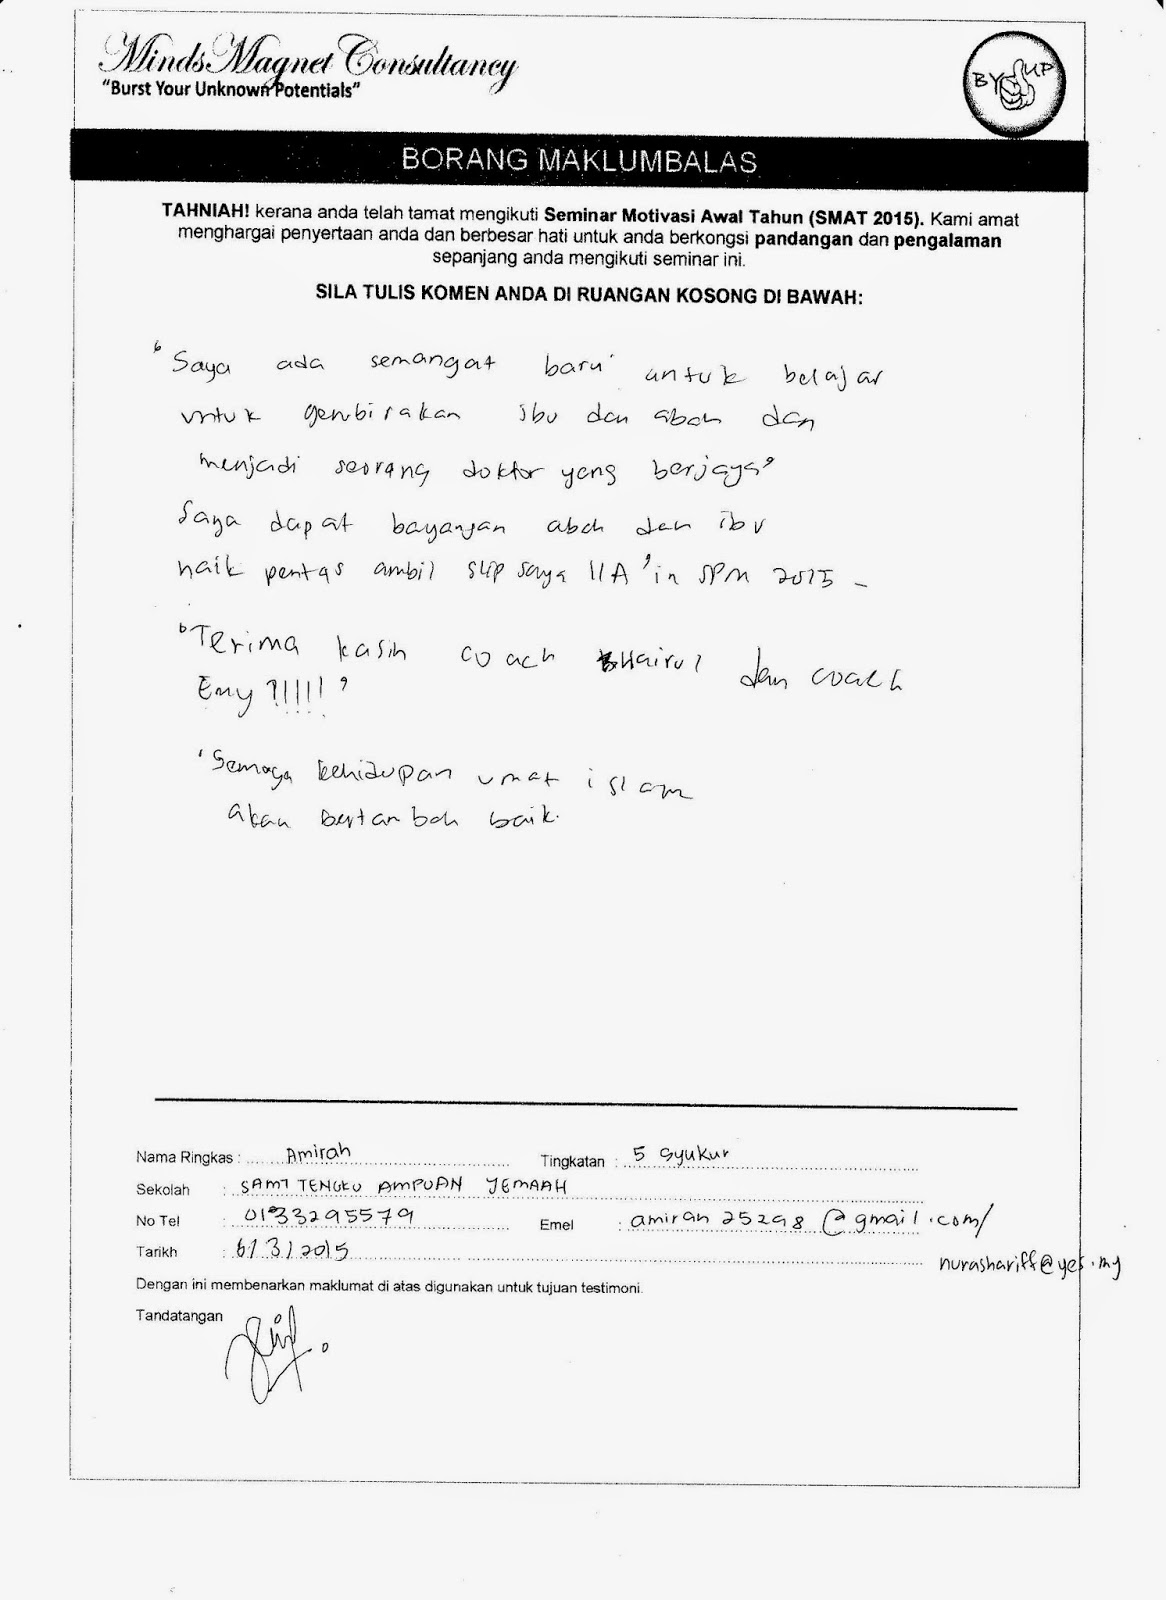 Minds Magnet Consultancy
"Burst Your Unknown Potentials"
BY UP
BORANG MAKLUMBALAS
TAHNIAH! kerana anda telah tamat mengikuti Seminar Motivasi Awal Tahun (SMAT 2015). Kami amat
menghargai penyertaan anda dan berbesar hati untuk anda berkongsi pandangan dan pengalaman
sepanjang anda mengikuti seminar ini.
SILA TULIS KOMEN ANDA DI RUANGAN KOSONG DI BAWAH:
"Saya ada semangat baru untuk belajar
untuk gembirakan ibu dan abah dan
menjadi seorang doktor yang berjaya"
Saya dapat bayangan abah dan ibu
naik pentas ambil slip saya 11A 'in SPM 2015 -
"Terima kasih coach Khairul dan coach
Emy ?!!!!! '
' Semoga kehidupan umat islam
akan bertambah baik.
Nama Ringkas : Amirah Tingkatan : 5 Syukur
Sekolah : SAMT TENGKU AMPUAN JEMAAH
No Tel : 0133295579 Emel : amirah25298@gmail.com/
nurashariff@yes.my
Tarikh : 6/3/2015
Dengan ini membenarkan maklumat di atas digunakan untuk tujuan testimoni.
Tandatangan